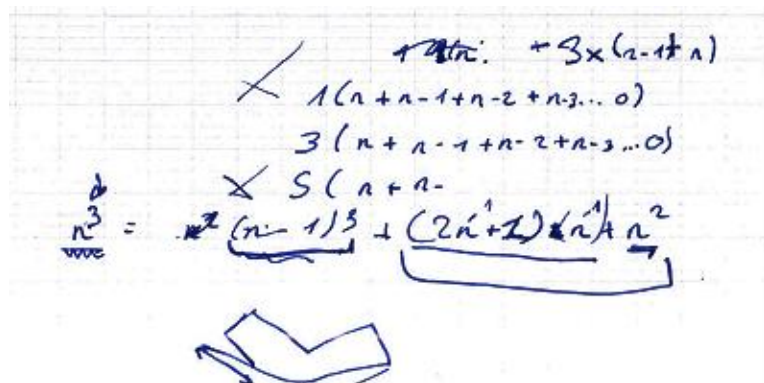 + 3x(n-1+n)
1(n+n-1+n-2+n-3...0)
3(n+n-1+n-2+n-3...0)
5(n+n-
n³ = (n-1)3 + (2n-1+1)x(n-1)+n²